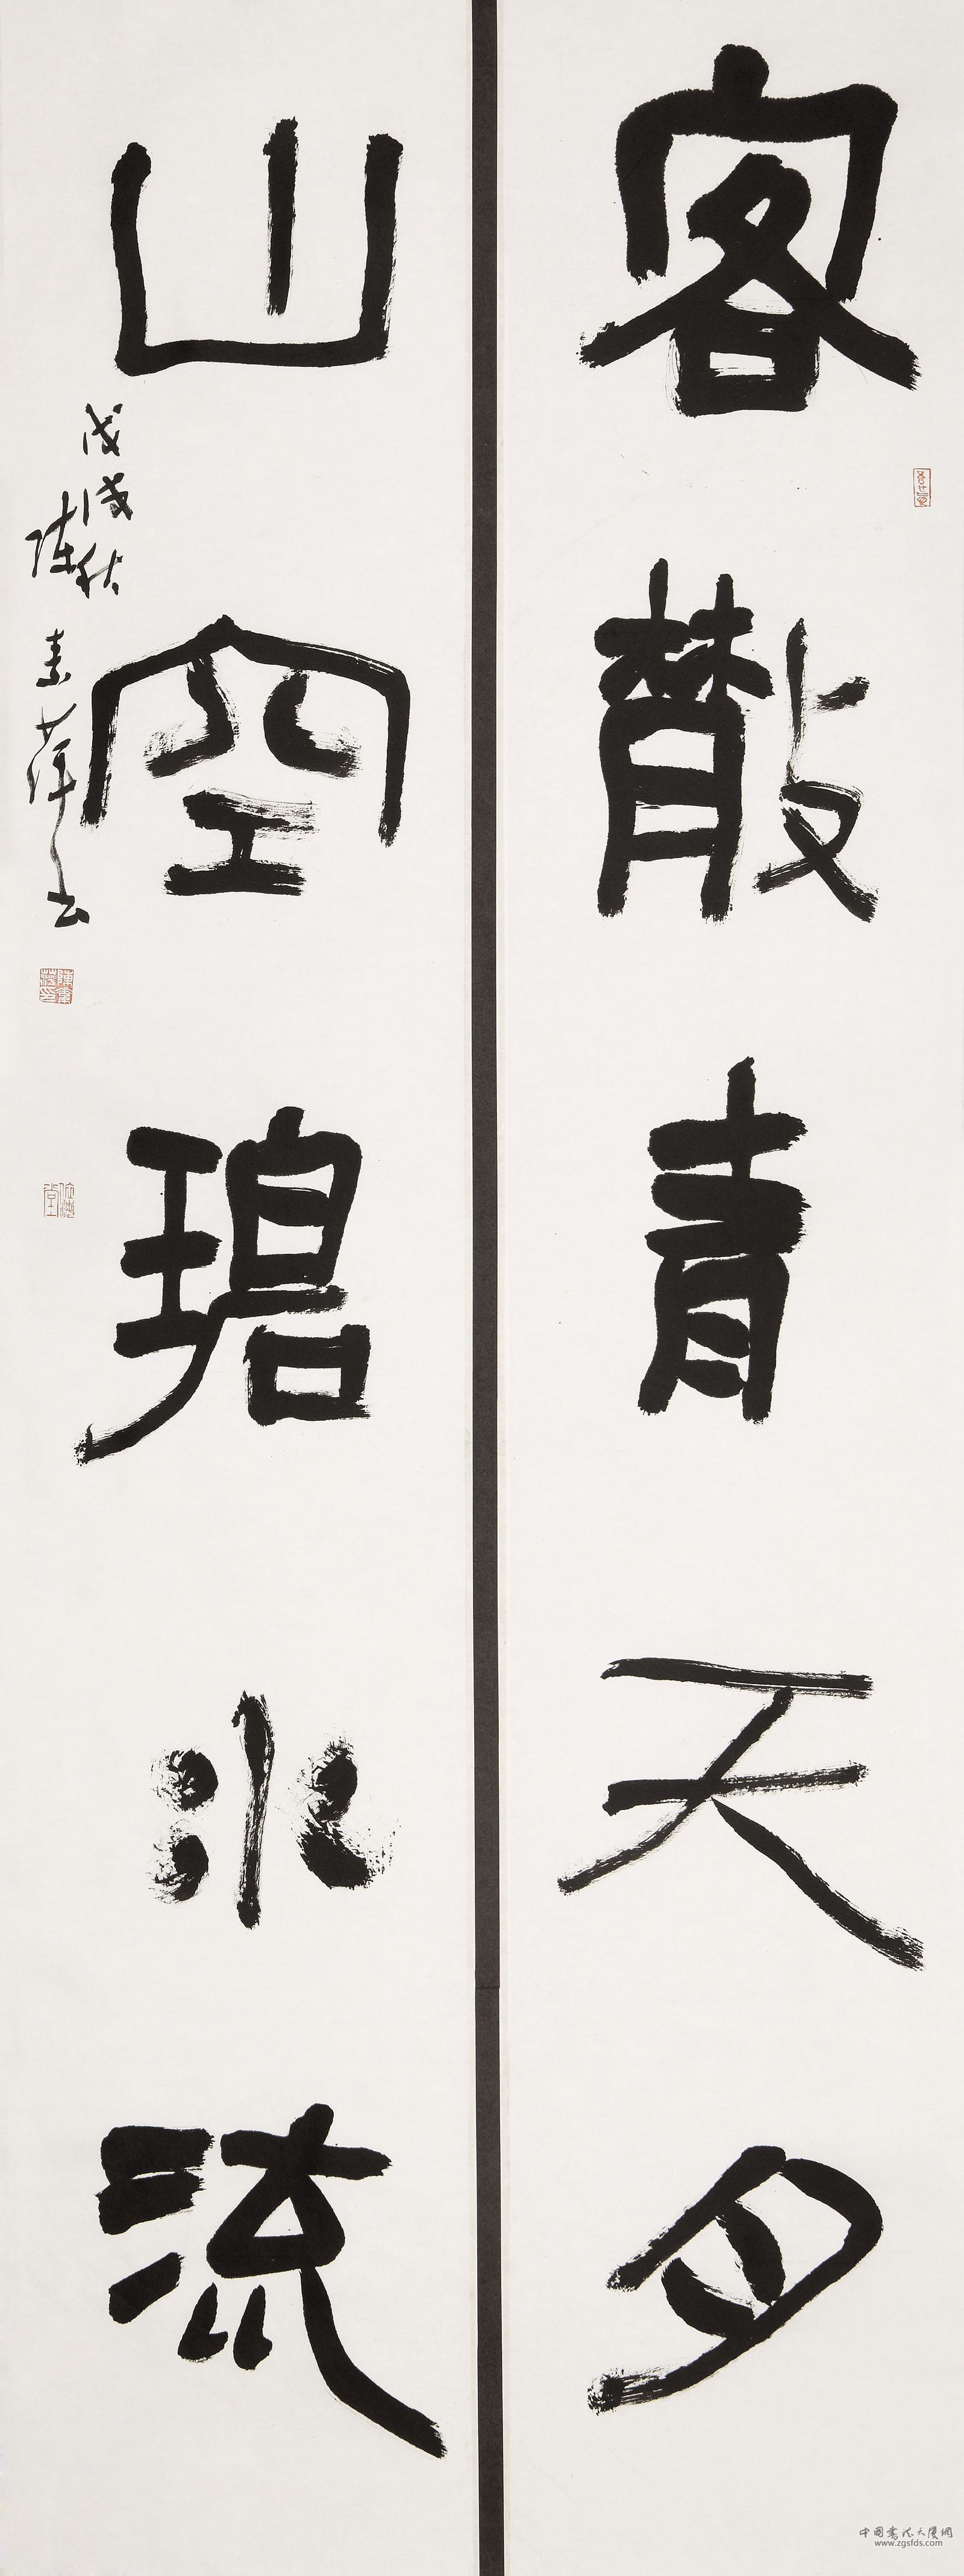 客散青天月
山空碧水流
戊戌秋
陈素萍书
中国书法大厦网
www.zgsfds.com